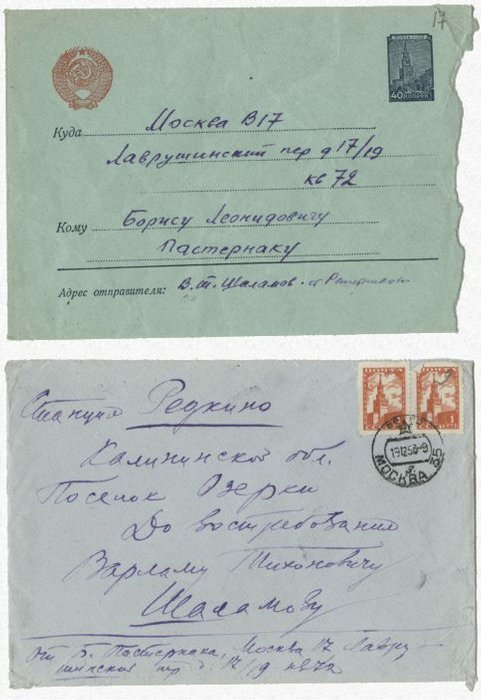 17
40 КОПЕЕК
Куда Москва В17
Лаврушинский пер д 17/19
кв 72
Кому Борису Леонидовичу
Пастернаку
Адрес отправителя: В.Т. Шаламов
ПОЧТА
1
3
Станция Редкино
Калининской обл.
Поселок Озерки
До востребования
Варламу Тихоновичу
Шаламову
МОСКВА
от Б. Пастернака, Москва 17 Лавру-
шинский пер д. 17/19 кв 72